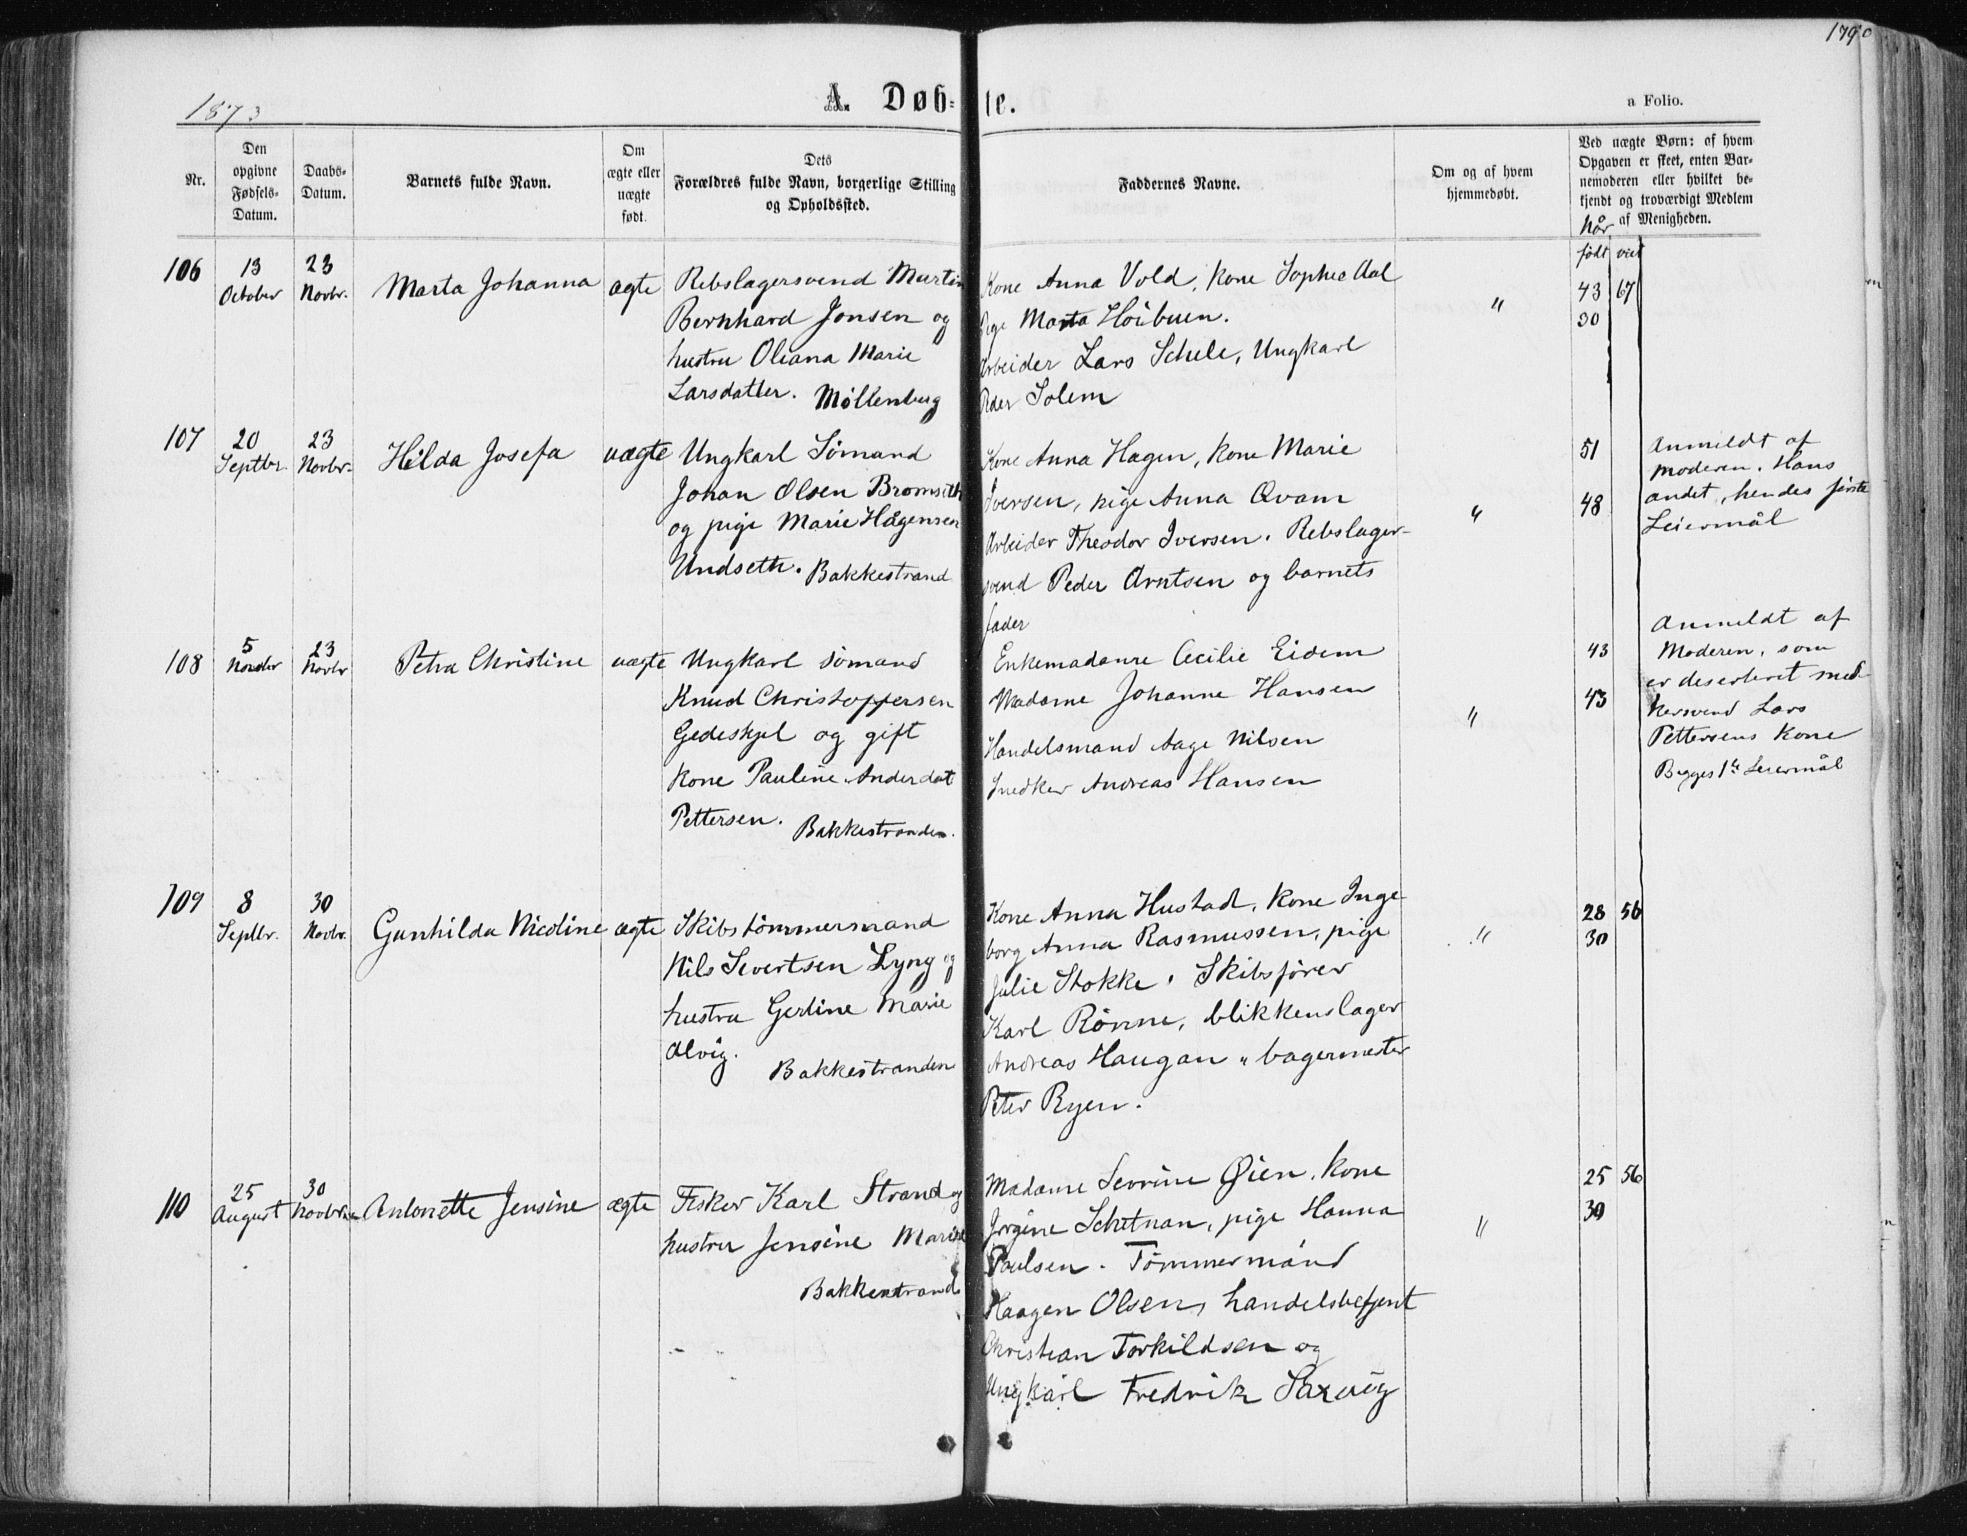 1790
1873
A. Døbte.
a Folio.
Nr.
Den opgivne Fødsels-Datum.
Daabs-Datum.
Barnets fulde Navn.
Om ægte eller uægte født.
Dets Forældres fulde Navn, borgerlige Stilling og Opholdssted.
Faddernes Navne.
Om og af hvem hjemmedøbt.
Ved uægte Børn: af hvem Opgaven er skeet, enten Barnemoderen eller hvilket bekjendt og troværdigt Medlem af Menigheden.
når
født viet
106 13 October 23 Novbr. Marta Johanna ægte
Rebslagersvend Martin
Bernhard Jonsen og
hustru Oliana Marie
Larsdatter. Møllenberg
Kone Anna Vold, kone Sophie Aal
Pige Marta Höibuen.
Arbeider Lars Schele, Ungkarl
Peder Solem
"
43 67
30
107 20 Septbr. 23 Novbr. Hilda Josefa uægte
Ungkarl Sømand
Johan Olsen Bromseth
og pige Marie Hågensen
Undseth. Bakkestrand
Kone Anna Hagen, kone Marie
Iversen, pige Anna Qvam
Arbeider Theodor Iversen. Rebslager-
svend Peder Arntsen og barnets
fader
"
51
48
Anmeldt af
Moderen. Hans
andet, hendes første
Leiermål
108 5 Novbr 23 Novbr Petra Christine uægte
Ungkarl sømand
Knud Christoffersen
Gedeskjel og gift
kone Pauline Andersdat
Pettersen. Bakkestranden.
Enkemadame Cecilie Eidem
Madame Johanne Hansen
Handelsmand Aage Nilsen
Snedker Andreas Hansen
"
43
43
Anmeldt af
Moderen, som
er deserteret sned-
kersvend Lars
Pettersens Kone
Begges 1ste Leiermål
109 8 Septbr. 30 Novbr. Gunhilda Nicoline ægte
Skibstømmermand
Nils Sivertsen Lyng og
hustru Gertine Marie
Alvig.
Bakkestranden
Kone Anna Hustad, kone Inge
borg Anna Rasmussen, pige
Julie Stokke. Skibsfører
Karl Rönne, blikkenslager
Andreas Haugan " bagermester
Peter Ryen.
"
28 56
30
110 25 August 30 Novbr. Antonette Jensine ægte
Fisker Karl Strand og
hustru Jensine Marie
Bakkestrand
Madame Sevrine Øien, kone
Jørgine Schetnan, pige Hanna
Paulsen. Tømmermand
Haagen Olsen, handelsbetjent
Christian Torkildsen og
Ungkarl Fredrik Saxvig
"
25 56
30